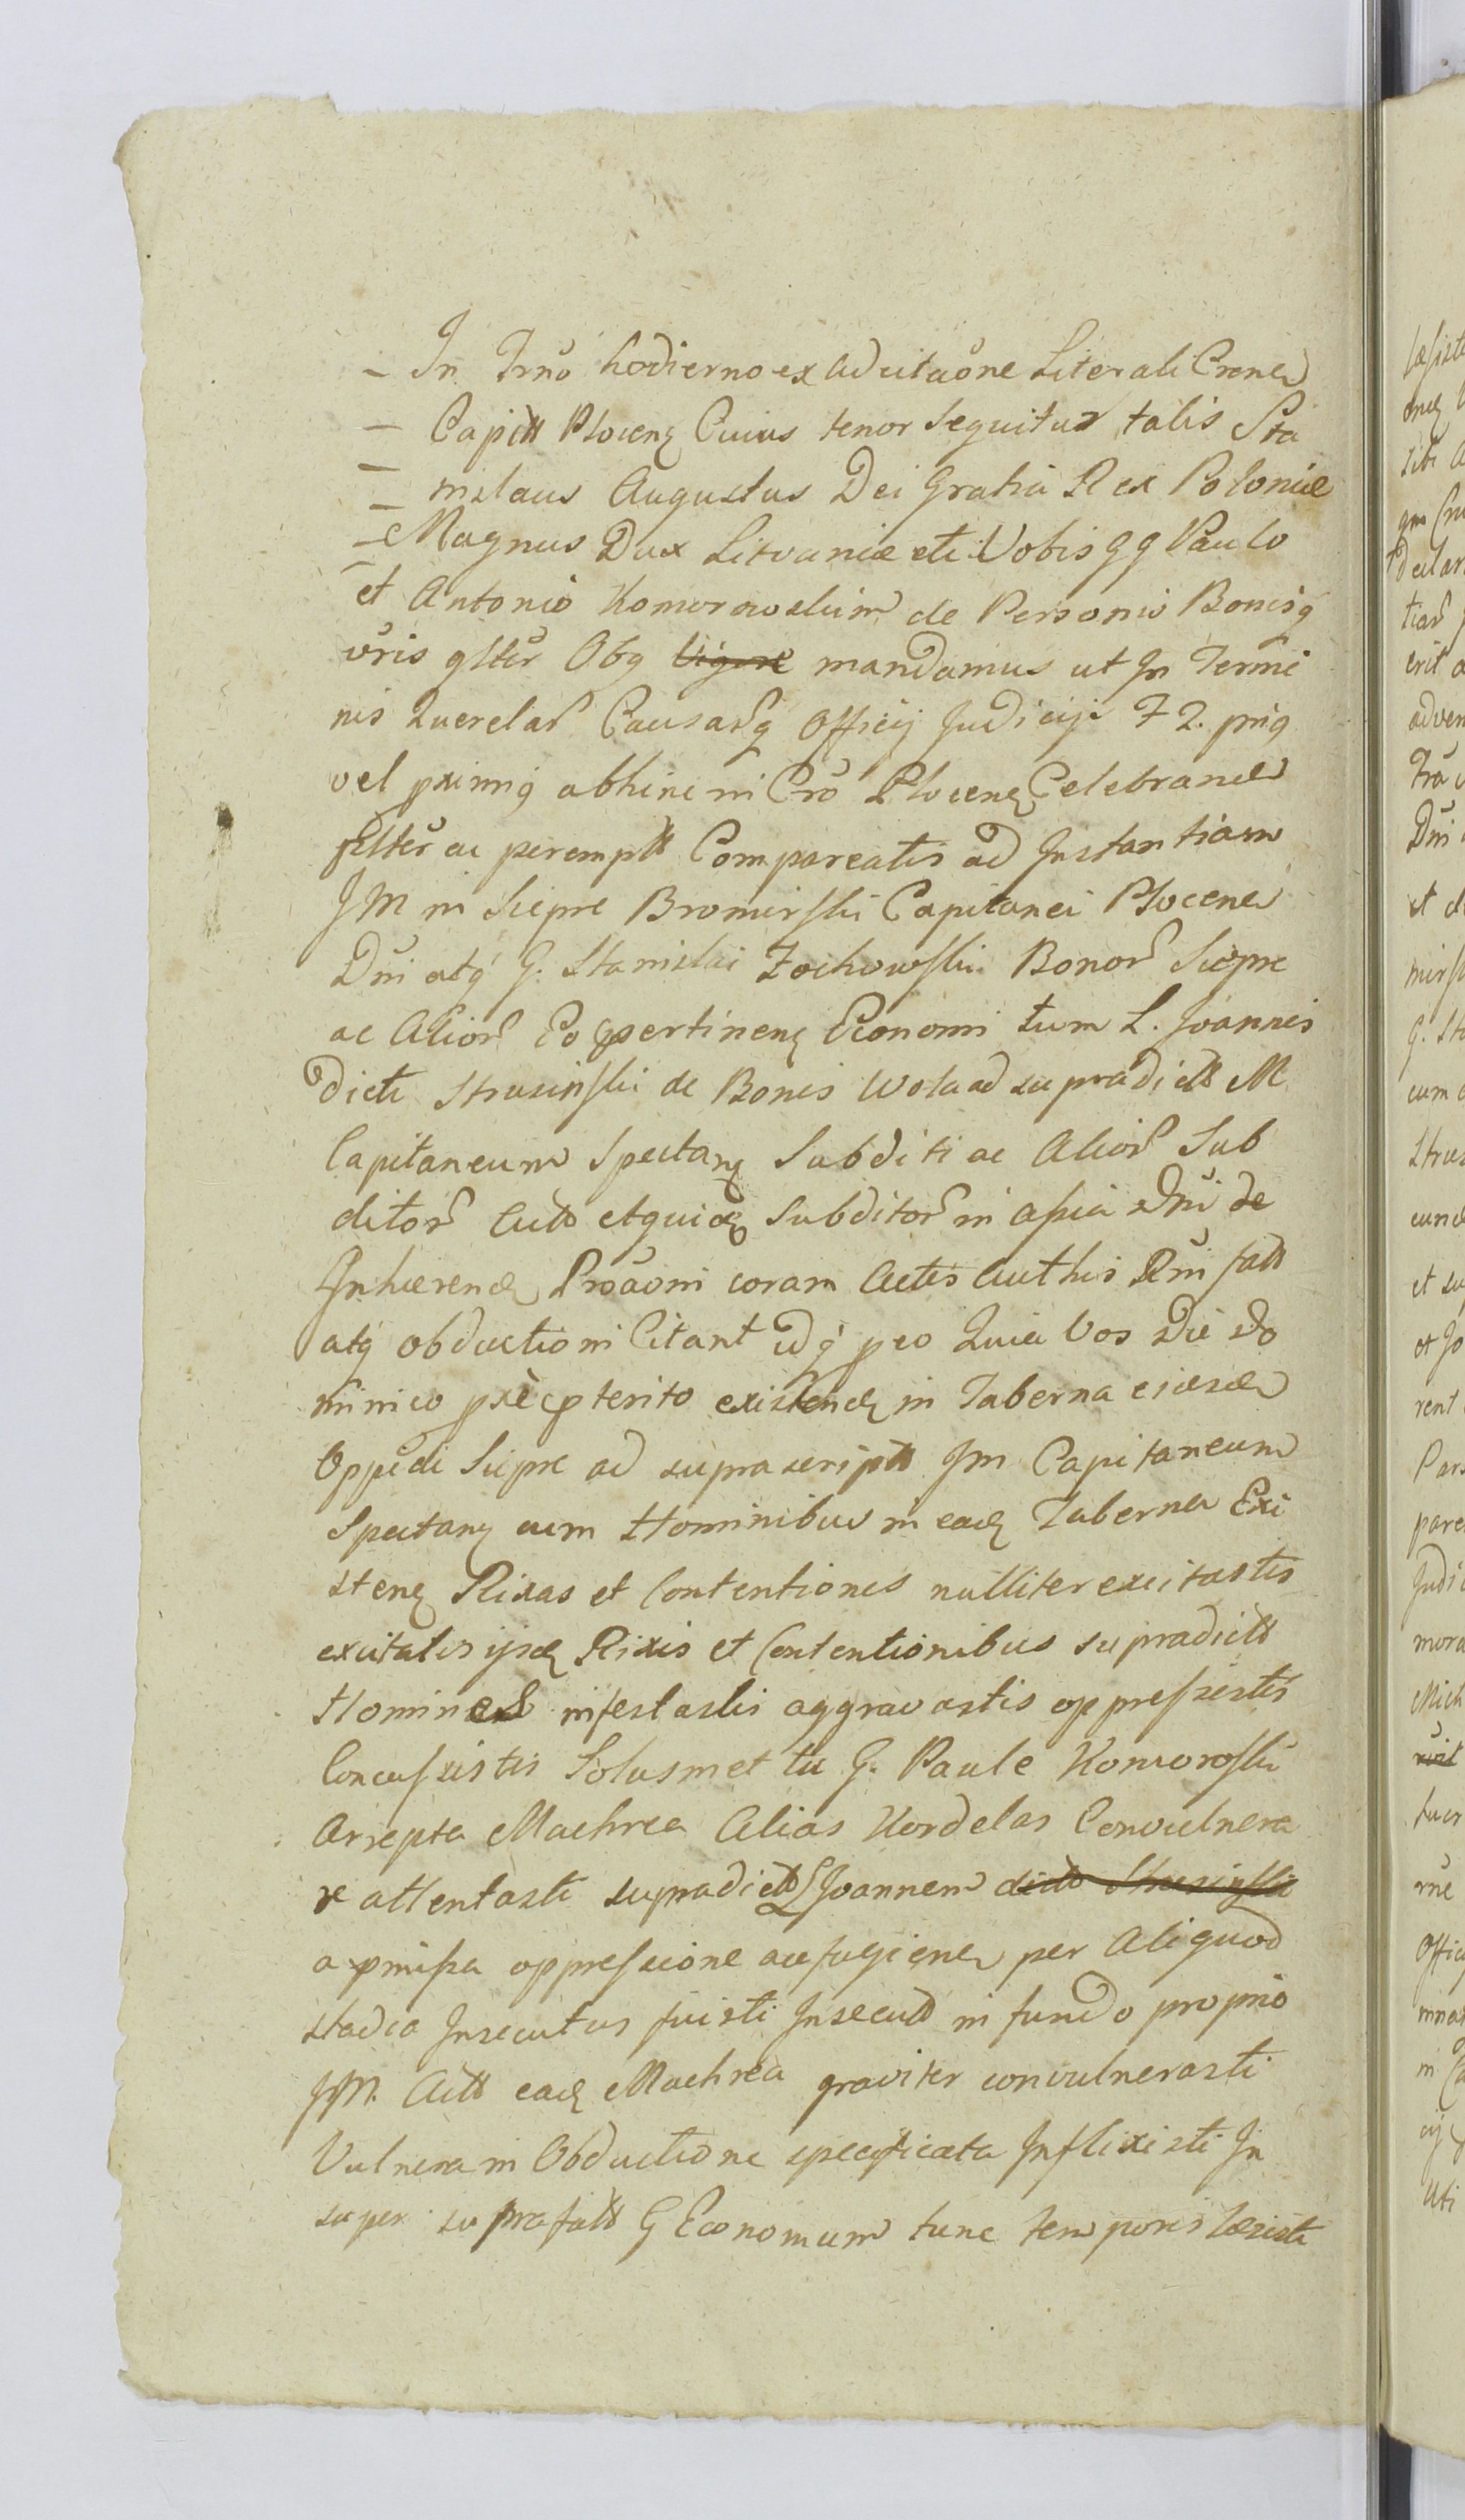 In Trno hodierno ex ad citaone Literali Crone
Capitt Plocen Cuius tenor sequitur talis Sta
nislaus Augustus Dei Gratia Rex Poloniæ
Magnus Dux Litvaniæ etc Vobis GG Paulo
et Antonio Komorowskim de Personis Bonisq
vris gltr Obq Vigore mandamus ut In Termi
nis Querelar Causarq Officij Judicij F 2. pnig
vel prximq abhinc in Cro Plocen Celebrand
pltr ac peremptt Compareatis ad Instantiam
JM in Siepre Bromirski Capitanei Plocen
Dni atq G. Stanislai Zochowski Bonor Siepre
ac Alior Eo pertinen Economi tum L. Joannis
dicti Strusinski de Bonis Wola ad supradictt M
Capitaneum Spectan Subditi ac Alior Sub
ditor Actt et quidq Subditor in asia Dni de
Inhærend Proaoni coram Actis Authis Rni fatt
atq obductioni Citant idq peo Quia Vos Die Do
minico præpterito existend in Taberna eiusd
Oppidi Siepre ad suprascriptt Jm Capitaneum
Spectan cum Hominibus in ead Taberna Exi
sten Rixas et Contentiones nulliter excitastis
excitatis ijsd Rixis et Contentionibus supradictt
Homines infestastis aggravastis oppressistis
Concussistis Solusmet tu G. Paule Komoroski
Arrepta Machæra Alias Kordelas Convulnera
re attentasti supradictt L Joannem dictt Strusinski
a pmissa oppressione aufugien per Aliquod
stadia Insecutus fuisti Insecutt in fundo proprio
JM. Actt ead Machæra graviter convulnerasti
Vulnera in Obductione specificata Inflixisti In
super suprafatt G Economum tunc temporis læsisti